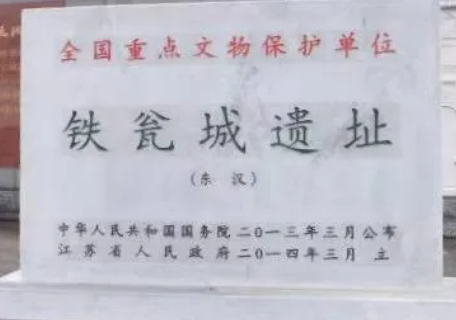 全国重点文物保护单位
铁瓮城遗址
(东汉)
中华人民共和国国务院二〇一三年三月公布
江苏省人民政府二〇一四年三月立